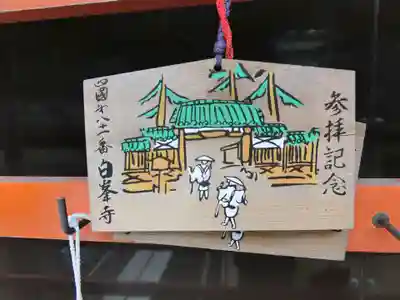 参拝記念
四國第八十一番
白峯寺